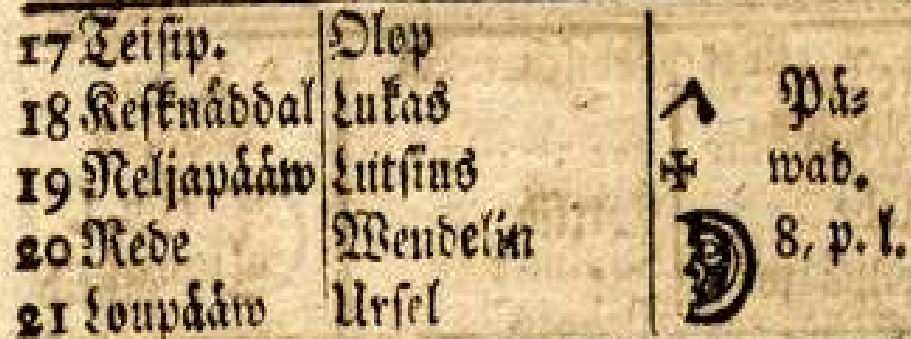 17 Teisip. Olop
18 Kesknäddal Lukas Pä-
19 Neljapääw Lutsius wad.
20 Rede Wendelin 8, p. l.
21 Loupääw Ursel